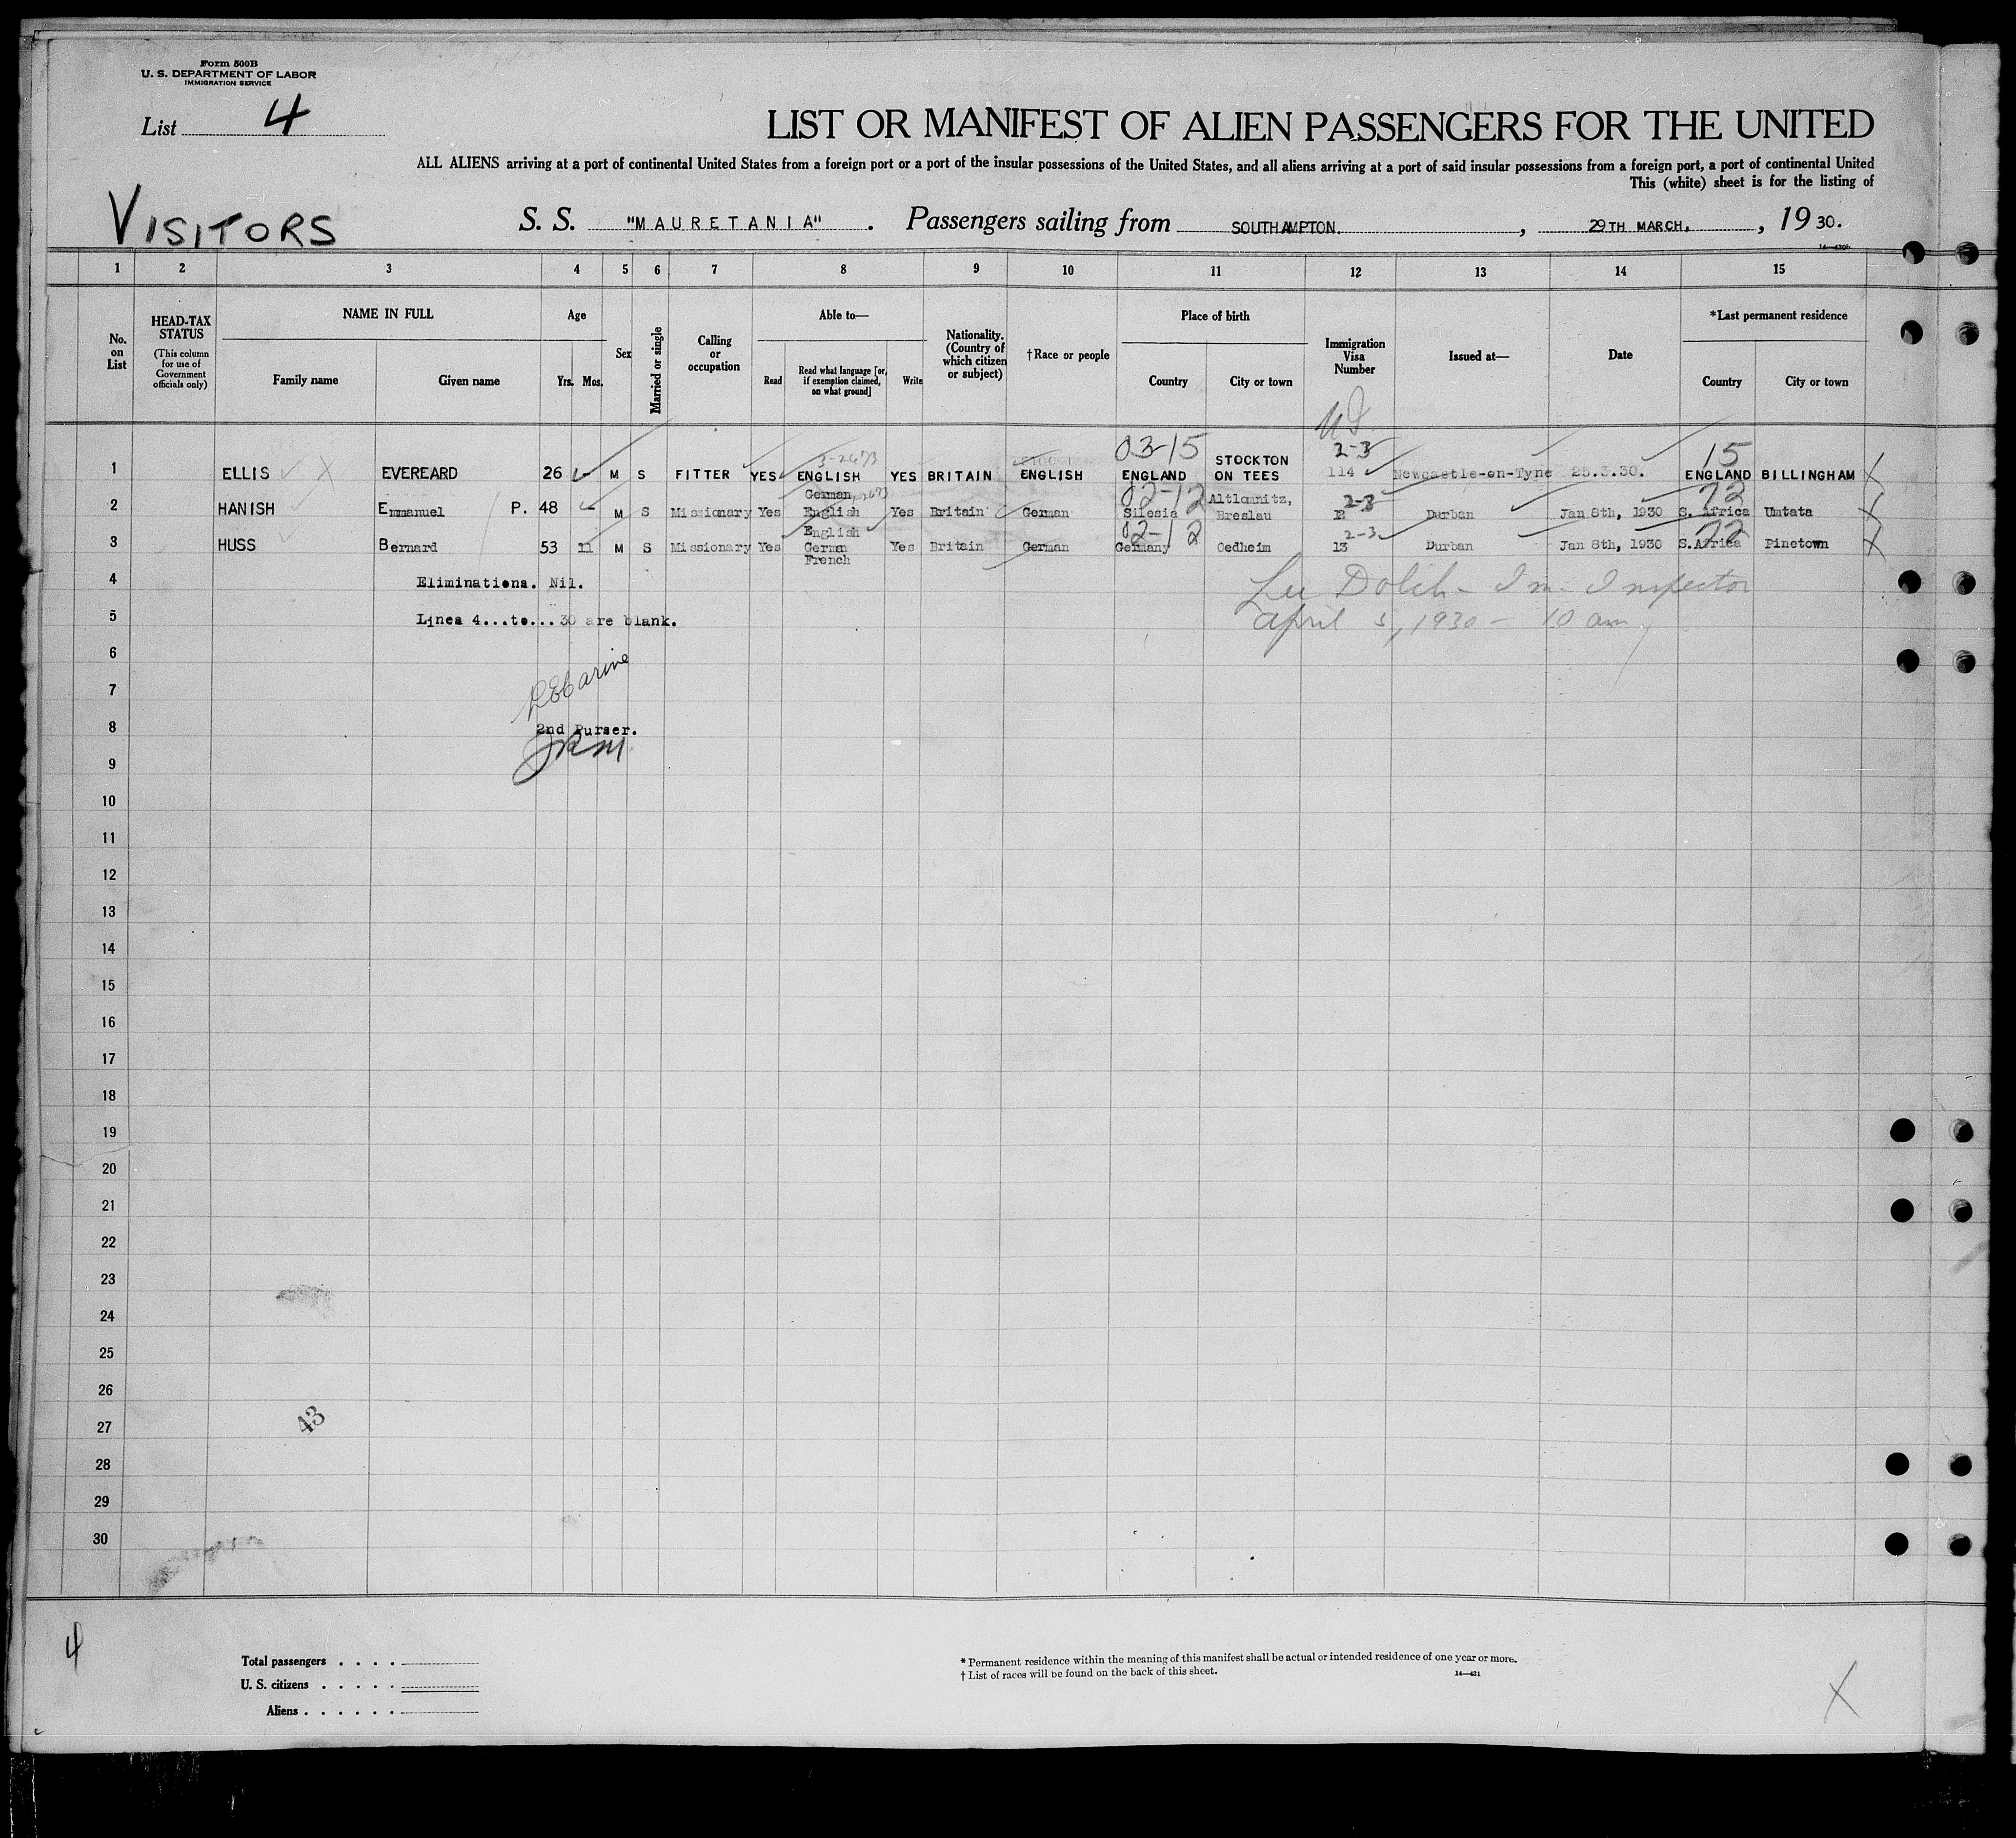 Form 500B
U. S. DEPARTMENT OF LABOR
IMMIGRATION SERVICE
List 4
LIST OR MANIFEST OF ALIEN PASSENGERS FOR THE UNITED
ALL ALIENS arriving at a port of continental United States from a foreign port or a port of the insular possessions of the United States, and all aliens arriving at a port of said insular possessions from a foreign port, a port of continental United
This (white) sheet is for the listing of
VISITORS
S. S. "MAURETANIA". Passengers sailing from SOUTHAMPTON. , 29TH MARCH, , 19 30.
1 2 3 4 5 6 7 8 9 10 11 12 13 14 15
No. on List
HEAD-TAX STATUS (This column for use of Government officials only)
NAME IN FULL
Family name
Given name
Age
Yrs. Mos.
Sex
Married or single
Calling or occupation
Able to—
Read
Read what language [or, if exemption claimed, on what ground]
Write
Nationality. (Country of which citizen or subject)
†Race or people
Place of birth
Country
City or town
Immigration Visa Number
Issued at—
Date
*Last permanent residence
Country
City or town
03-15 2-3 15
1 ELLIS EVEREARD 26 M S FITTER YES ENGLISH YES BRITAIN ENGLISH ENGLAND STOCKTON ON TEES 114 Newcastle-on-Tyne 25.3.30. ENGLAND BILLINGHAM
02-12 2-3 72
2 HANISH Emmanuel P. 48 M S Missionary Yes German English Yes Britain German Silesia Altlomnitz, Breslau Durban Jan 8th, 1930 S. Africa Umtata
02-12 2-3 72
3 HUSS Bernard 53 11 M S Missionary Yes English German French Yes Britain German Germany Oedheim 13 Durban Jan 8th, 1930 S.Africa Pinetown
4 Eliminations. Nil.
Dolch - Im. Inspector
5 Lines 4...to...30 are blank.
April 5, 1930 - 10 am
6
7
8 2nd Purser.
9
10
11
12
13
14
15
16
17
18
19
20
21
22
23
24
25
26
27
43
28
29
30
4
Total passengers . . . .
U. S. citizens . . . . .
Aliens . . . . . .
* Permanent residence within the meaning of this manifest shall be actual or intended residence of one year or more.
† List of races will be found on the back of this sheet.
14—431